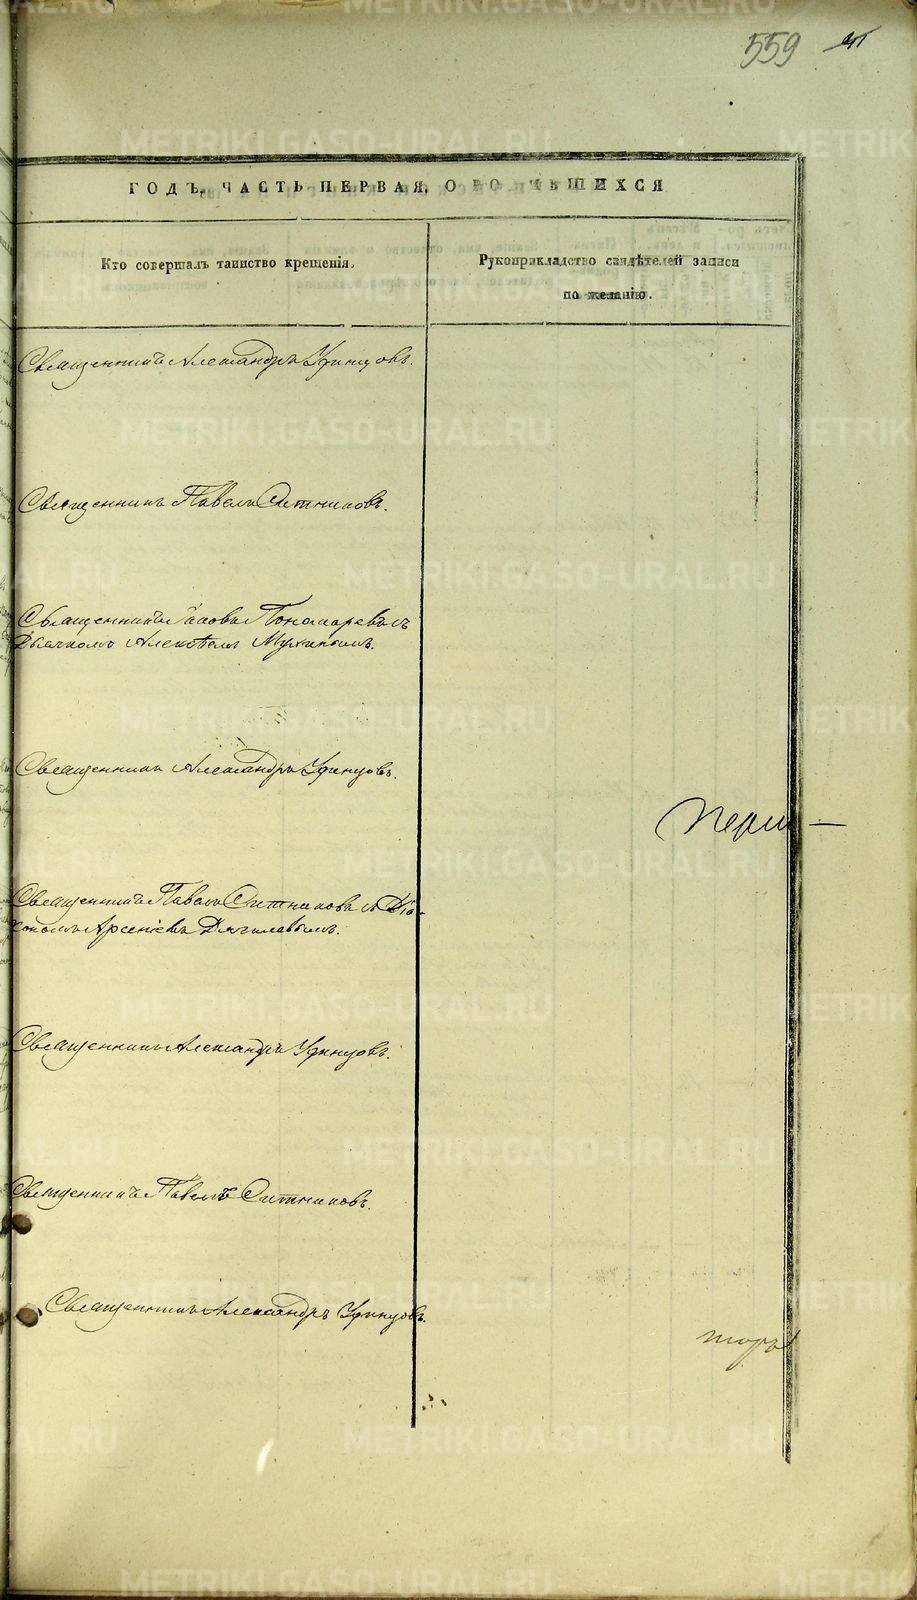 559
ГОДЪ, ЧАСТЬ ПЕРВАЯ, О РОДИВШИХСЯ
Кто совершалъ таинство крещенія.
Рукоприкладство свидѣтелей записи
по желанію.
Священникъ Александръ Удинцовъ.
Священникъ Павелъ Ситниковъ.
Священникъ Іаковъ Пономаревъ съ
Дьячкомъ Алексѣемъ Мухинымъ.
Священникъ Александръ Удинцовъ.
Священникъ Павелъ Ситниковъ съ Діа-
кономъ Арсеніемъ Дягилевымъ.
Священникъ Александръ Удинцовъ.
Священникъ Павелъ Ситниковъ.
Священникъ Александръ Удинцовъ.
METRIKI.GASO-URAL.RU